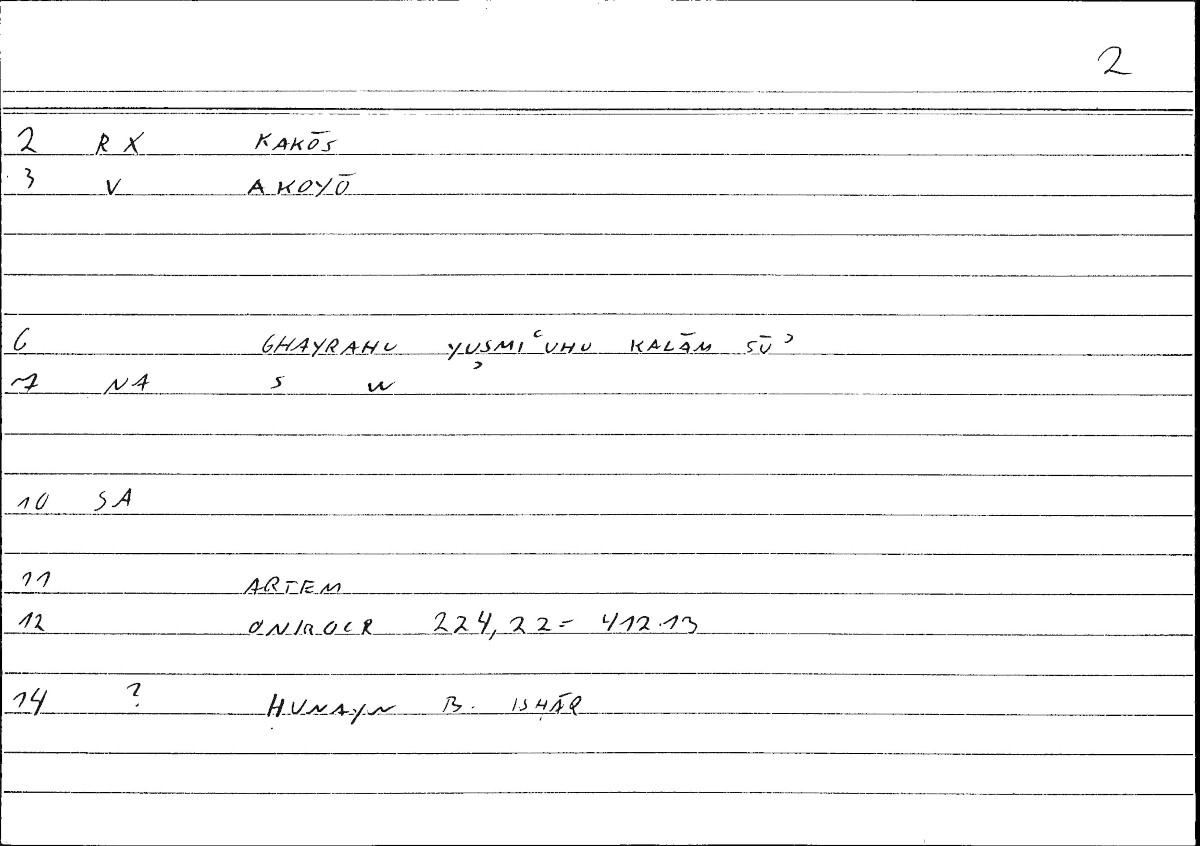 2
2 RX KAKŌS
3 V AKOYŌ
6 GHAYRAHU YUSMIʿUHU KALĀM SŪʾ
7 NA S ʾ W
10 SA
11 ARTEM
12 ONIROCR 224,22 = 412.13
14 ? ḤUNAYN B. ISḤĀQ